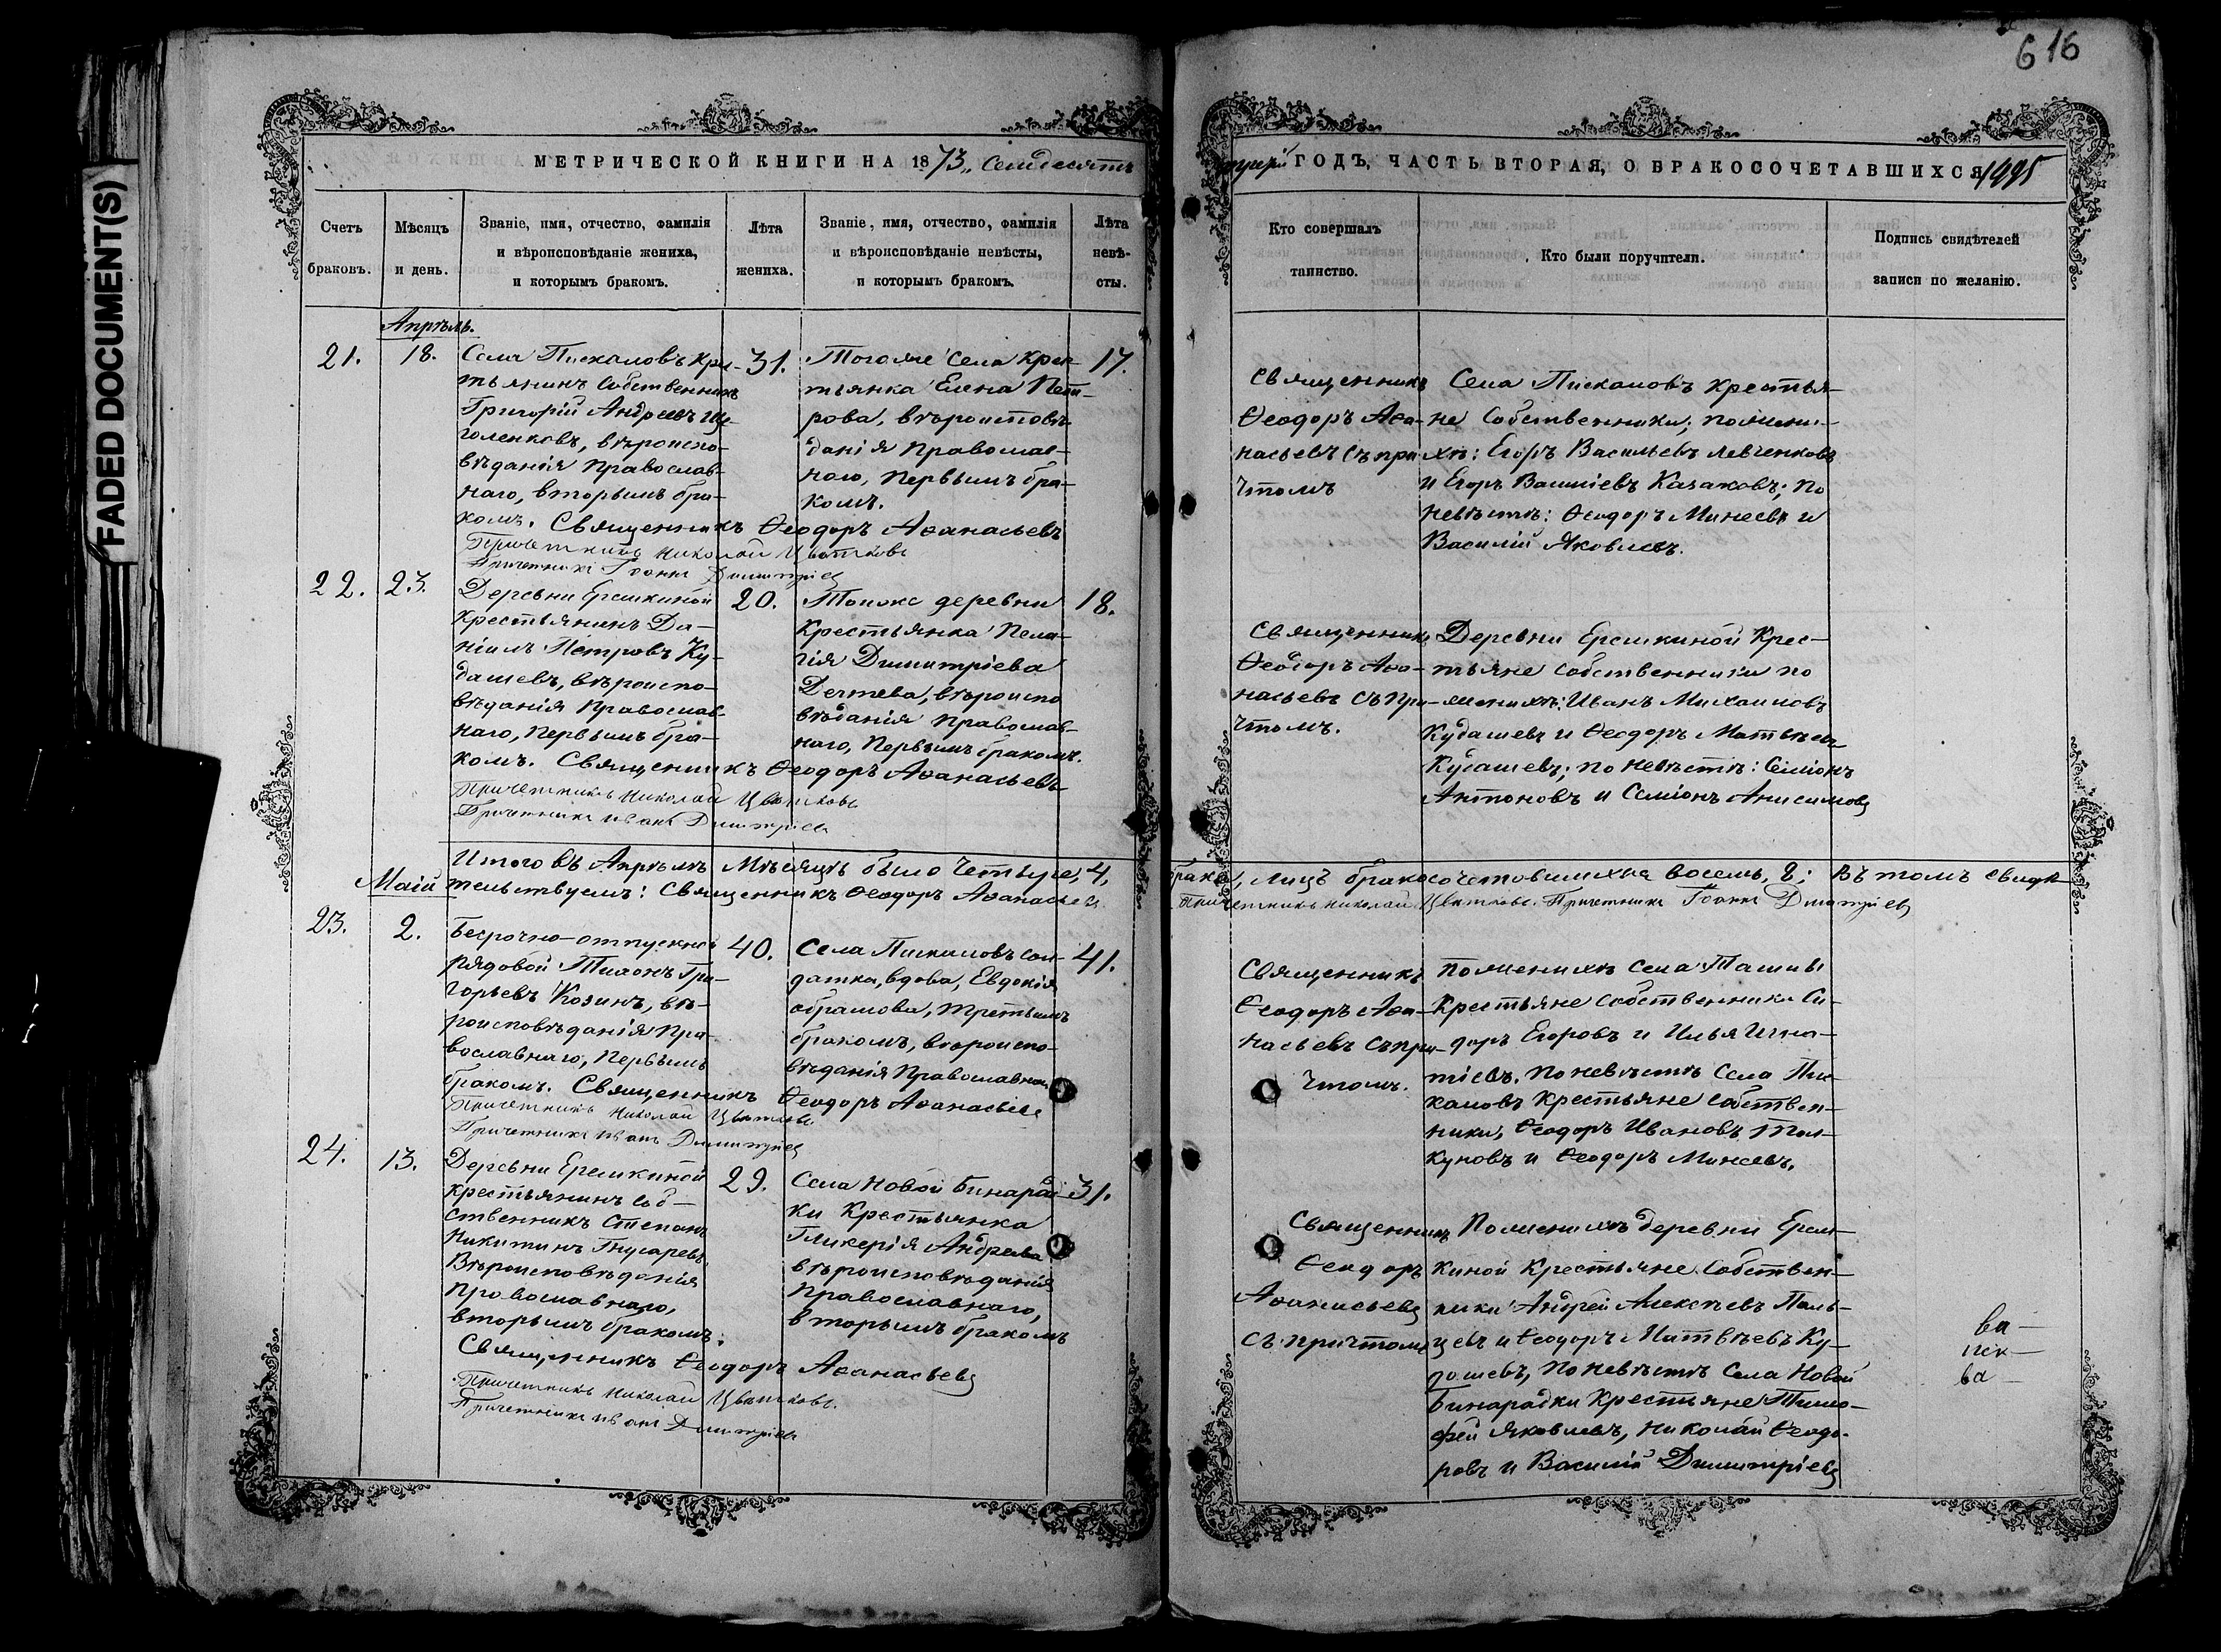 FADED DOCUMENT(S)
616
МЕТРИЧЕСКОЙ КНИГИ НА 1873, Семдесятъ
третій ГОДЪ, ЧАСТЬ ВТОРАЯ, О БРАКОСОЧЕТАВШИХСЯ
Счетъ браковъ.
Мѣсяцъ и день.
Званіе, имя, отчество, фамилія
и вѣроисповѣданіе жениха,
и которымъ бракомъ.
Лѣта жениха.
Званіе, имя, отчество, фамилія
и вѣроисповѣданіе невѣсты,
и которымъ бракомъ.
Лѣта невѣ-
сты.
Кто совершалъ
таинство.
Кто были поручители.
Подпись свидѣтелей
записи по желанію.
Апрѣль.
21.
18.
Села Пискаловъ Кре-
стьянинъ Собственникъ
Григорій Андреевъ Ще-
голенковъ, вѣроиспо-
вѣданія Православ-
наго, вторымъ бра-
комъ. Священникъ Ѳеодоръ Аѳанасьевъ
Причетникъ Николай Цвѣтковъ
Причетникъ Іоаннъ Димитріевъ
31.
Тогоже Села Крес-
тьянка Елена Пет-
рова, вѣроисповѣ-
данія Православ-
наго, Первымъ бра-
комъ.
17.
Священникъ
Ѳеодоръ Аѳа-
насьевъ съ при-
чтомъ
Села Пискаловъ Крестья-
не Собственники; по жени-
хѣ: Егоръ Васильевъ Левченковъ
и Егоръ Василіевъ Казаковъ; по
невѣстѣ: Ѳеодоръ Минеевъ и
Василій Яковлевъ.
22.
23.
Деревни Еремкиной
Крестьянинъ Да-
ніилъ Петровъ Ку-
дашевъ, вѣроиспо-
вѣданія Православ-
наго, Первымъ бра-
комъ. Священникъ Ѳеодоръ Аѳанасьевъ
Причетникъ Николай Цвѣтковъ
Причетникъ Иванъ Димитріевъ
20.
Тойже деревни
Крестьянка Пела-
гія Димитріева
вѣроиспо
вѣданія Православ-
наго, Первымъ бракомъ.
18.
Священникъ
Ѳеодоръ Аѳа-
насьевъ съ При-
чтомъ.
Деревни Еремкиной Крес-
тьяне Собственники по
женихѣ: Иванъ Михаиловъ
Кудашевъ и Ѳеодоръ Матвѣевъ
Кудашевъ; по невѣстѣ: Семіонъ
Антоновъ и Семіонъ Анисимовъ
Итого въ Апрѣлѣ Мѣсяцѣ было Четыре, 4, брака, лицъ бракосочетовшихся восемь, 8; въ томъ свидѣ-
тельствуемъ: Священникъ Ѳеодоръ Аѳанасьевъ Причетникъ Николай Цвѣтковъ. Причетникъ Іоаннъ Димитріевъ
Маій
23.
2.
Безрочно-отпускной
рядовой Тихонъ Гри-
горьевъ Козинъ, вѣ-
роисповѣданія Пра-
вославнаго, Первымъ
бракомъ. Священникъ Ѳеодоръ Аѳанасьевъ
Причетникъ Николай Цвѣтковъ
Причетникъ Иванъ Димитріевъ
40.
Села Пискаловъ сол-
датка, вдова, Евдокія
Абрамова, третьимъ
бракомъ, вѣроиспо-
вѣданія Православнаго
41.
Священникъ
Ѳеодоръ Аѳа-
насьевъ съ при-
чтомъ.
По женихѣ Села Ташлы
Крестьяне Собственники Си-
доръ Егоровъ и Илья Игна-
тіевъ. По невѣстѣ Села Пис-
каловъ Крестьяне Собствен-
ники, Ѳеодоръ Ивановъ Тол-
куновъ и Ѳеодоръ Минеевъ.
24.
13.
Деревни Еремкиной
Крестьянинъ Соб-
ственникъ Степанъ
Никитинъ Гнусаревъ
Вѣроисповѣданія
Православнаго,
вторымъ бракомъ.
Священникъ Ѳеодоръ Аѳанасьевъ
Причетникъ Николай Цвѣтковъ.
Причетникъ Иванъ Димитріевъ
29.
Села Новой Бинарад-
ки Крестьянка
Гликерія Андреева
вѣроисповѣданія
Православнаго,
вторымъ бракомъ
31.
Священникъ
Ѳеодоръ
Аѳанасьевъ
съ причтомъ
По женихѣ деревни Ерем-
киной Крестьяне Собствен-
ники Андрей Алексѣевъ Паль-
цевъ и Ѳеодоръ Матвѣевъ Ку-
дашевъ, По невѣстѣ Села Новой
Бинарадки Крестьяне Тимо-
фей Яковлевъ, Николай Ѳеодо-
ровъ и Василій Димитріевъ